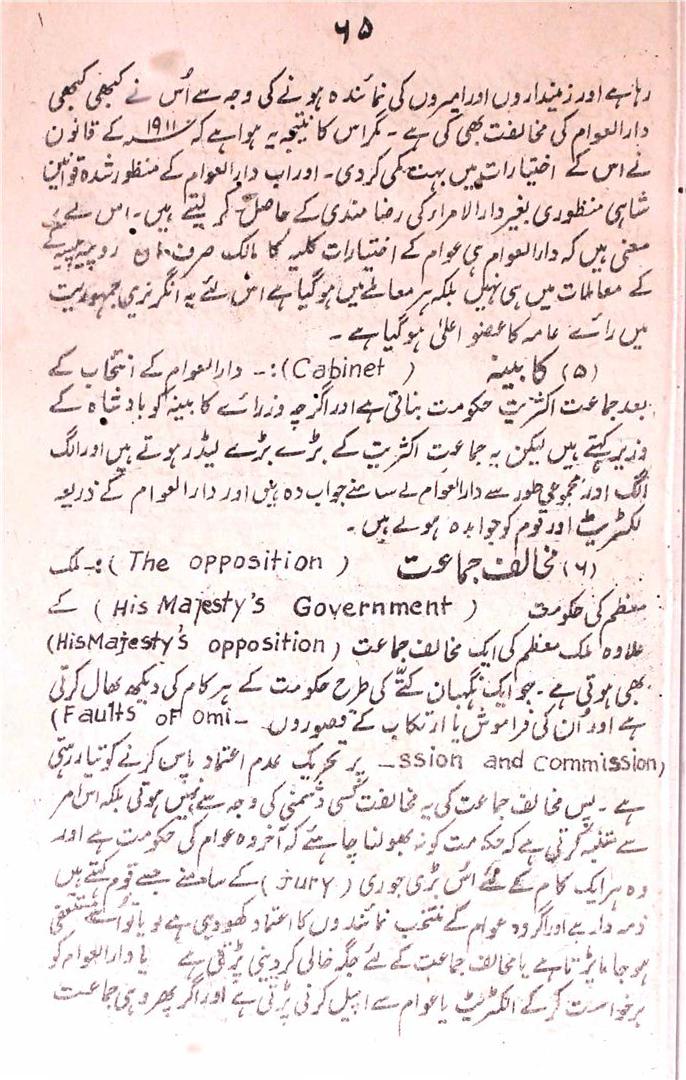 ۶۵
رہا ہے اور زمینداروں اور امیروں کی نمائندہ ہونے کی وجہ سے اُس نے کبھی کبھی
دارالعوام کی مخالفت بھی کی ہے ۔ مگر اس کا نتیجہ یہ ہوا ہے کہ ۱۹۱۱ء کے قانون
نے اس کے اختیارات میں بہت کمی کر دی ۔ اور اب دارالعوام کے منظور شدہ قوانین
شاہی منظوری بغیر دارالامراء کی رضا مندی کے حاصل کر لیتے ہیں ۔ اس کے یہ
معنی ہیں کہ دارالعوام ہی عوام کے اختیارات کلیہ کا مالک صرف روپیہ پیسہ کے
کے معاملات میں ہی نہیں بلکہ ہر معاملے میں ہو گیا ہے اس لئے یہ انگریزی جمہوریت
میں رائے عامہ کا عضو اعلیٰ ہو گیا ہے ۔
(۵) کابینہ (Cabinet) :۔ دارالعوام کے انتخاب کے
بعد جماعت اکثریت حکومت بناتی ہے اور اگرچہ وزرائے کابینہ کو بادشاہ کے
وزیر کہتے ہیں لیکن یہ جماعت اکثریت کے بڑے بڑے لیڈر ہوتے ہیں اور الگ
الگ اور مجموعی طور سے دارالعوام کے سامنے جواب دہ ہیں اور دارالعوام کے ذریعہ
لکٹریٹ اور قوم کو جوابدہ ہوتے ہیں ۔
(۶) مخالف جماعت (The opposition) :۔ ملک
معظم کی حکومت (His Majesty's Government) کے
علاوہ ملک معظم کی ایک مخالف جماعت (His Majesty's opposition)
بھی ہوتی ہے ۔ جو ایک نگہبان کتے کی طرح حکومت کے ہر کام کی دیکھ بھال کرتی
ہے اور اُن کی فراموش یا ارتکاب کے قصوروں (Faults of omi-
ssion and commission) پر تحریک عدم اعتماد پاس کرنے کو تیار رہتی
ہے ۔ پس مخالف جماعت کی یہ مخالفت کسی دشمنی کی وجہ سے نہیں ہوتی بلکہ اس امر
سے متنبہ کرتی ہے کہ حکومت کو نہ بھولنا چاہئے کہ آخر وہ عوام کی حکومت ہے اور
وہ ہر ایک کام کے لئے اُس بڑی جوری (Jury) کے سامنے جسے قوم کہتے ہیں
ذمہ دار ہے اور اگر وہ عوام کے منتخب نمائندوں کا اعتماد کھو دیتی ہے تو یا تو اُسے مستعفی
ہو جانا پڑتا ہے یا مخالف جماعت کے لئے جگہ خالی کر دینی پڑتی ہے یا دارالعوام کو
برخواست کر کے الکٹریٹ یا عوام سے اپیل کرنی پڑتی ہے اور اگر پھر وہی جماعت